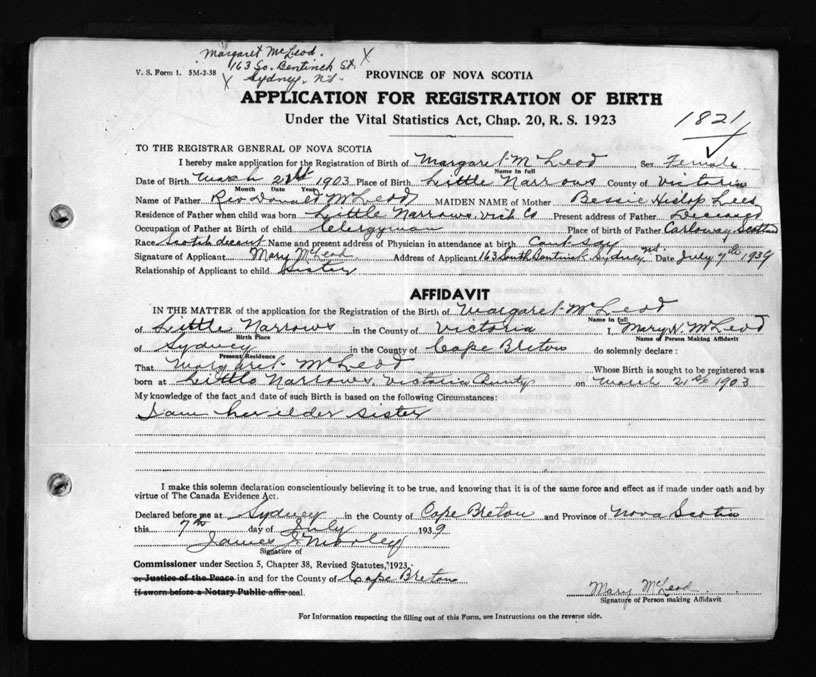 Margaret McLeod. X
163 So. Bentinck St.
X Sydney. N.S.
V. S. Form 1. 5M-2-38
PROVINCE OF NOVA SCOTIA
APPLICATION FOR REGISTRATION OF BIRTH
Under the Vital Statistics Act, Chap. 20, R. S. 1923
1821
TO THE REGISTRAR GENERAL OF NOVA SCOTIA
I hereby make application for the Registration of Birth of Margaret McLeod Sex Female
Name in full
Date of Birth March 21st 1903 Place of Birth Little Narrows County of Victoria
Month Date Year
Name of Father Rev Donald McLeod MAIDEN NAME of Mother Bessie Hislop Lees
Residence of Father when child was born Little Narrows, Vict. Co Present address of Father Deceased
Occupation of Father at Birth of child Clergyman Place of birth of Father Carloway Scotland
Race Scotch decent Name and present address of Physician in attendance at birth Cant say
Signature of Applicant Mary McLeod Address of Applicant 163 South Bentinck Sydney N.S. Date July 7th 1939
Relationship of Applicant to child Sister
AFFIDAVIT
IN THE MATTER of the application for the Registration of the Birth of Margaret McLeod
Name in full
of Little Narrows in the County of Victoria I, Mary N. McLeod
Birth Place Name of Person Making Affidavit
of Sydney in the County of Cape Breton do solemnly declare :
Present Residence
That Margaret McLeod Whose Birth is sought to be registered was
born at Little Narrows, Victoria County on March 21st 1903
My knowledge of the fact and date of such Birth is based on the following Circumstances:
I am her elder sister
I make this solemn declaration conscientiously believing it to be true, and knowing that it is of the same force and effect as if made under oath and by
virtue of The Canada Evidence Act.
Declared before me at Sydney in the County of Cape Breton and Province of Nova Scotia
this 7th day of July 1939
James J. Morley
Signature of
Commissioner under Section 5, Chapter 38, Revised Statutes, 1923,
or Justice of the Peace in and for the County of Cape Breton
If sworn before a Notary Public affix seal.
Mary McLeod
Signature of Person making Affidavit
For Information respecting the filling out of this Form, see Instructions on the reverse side.